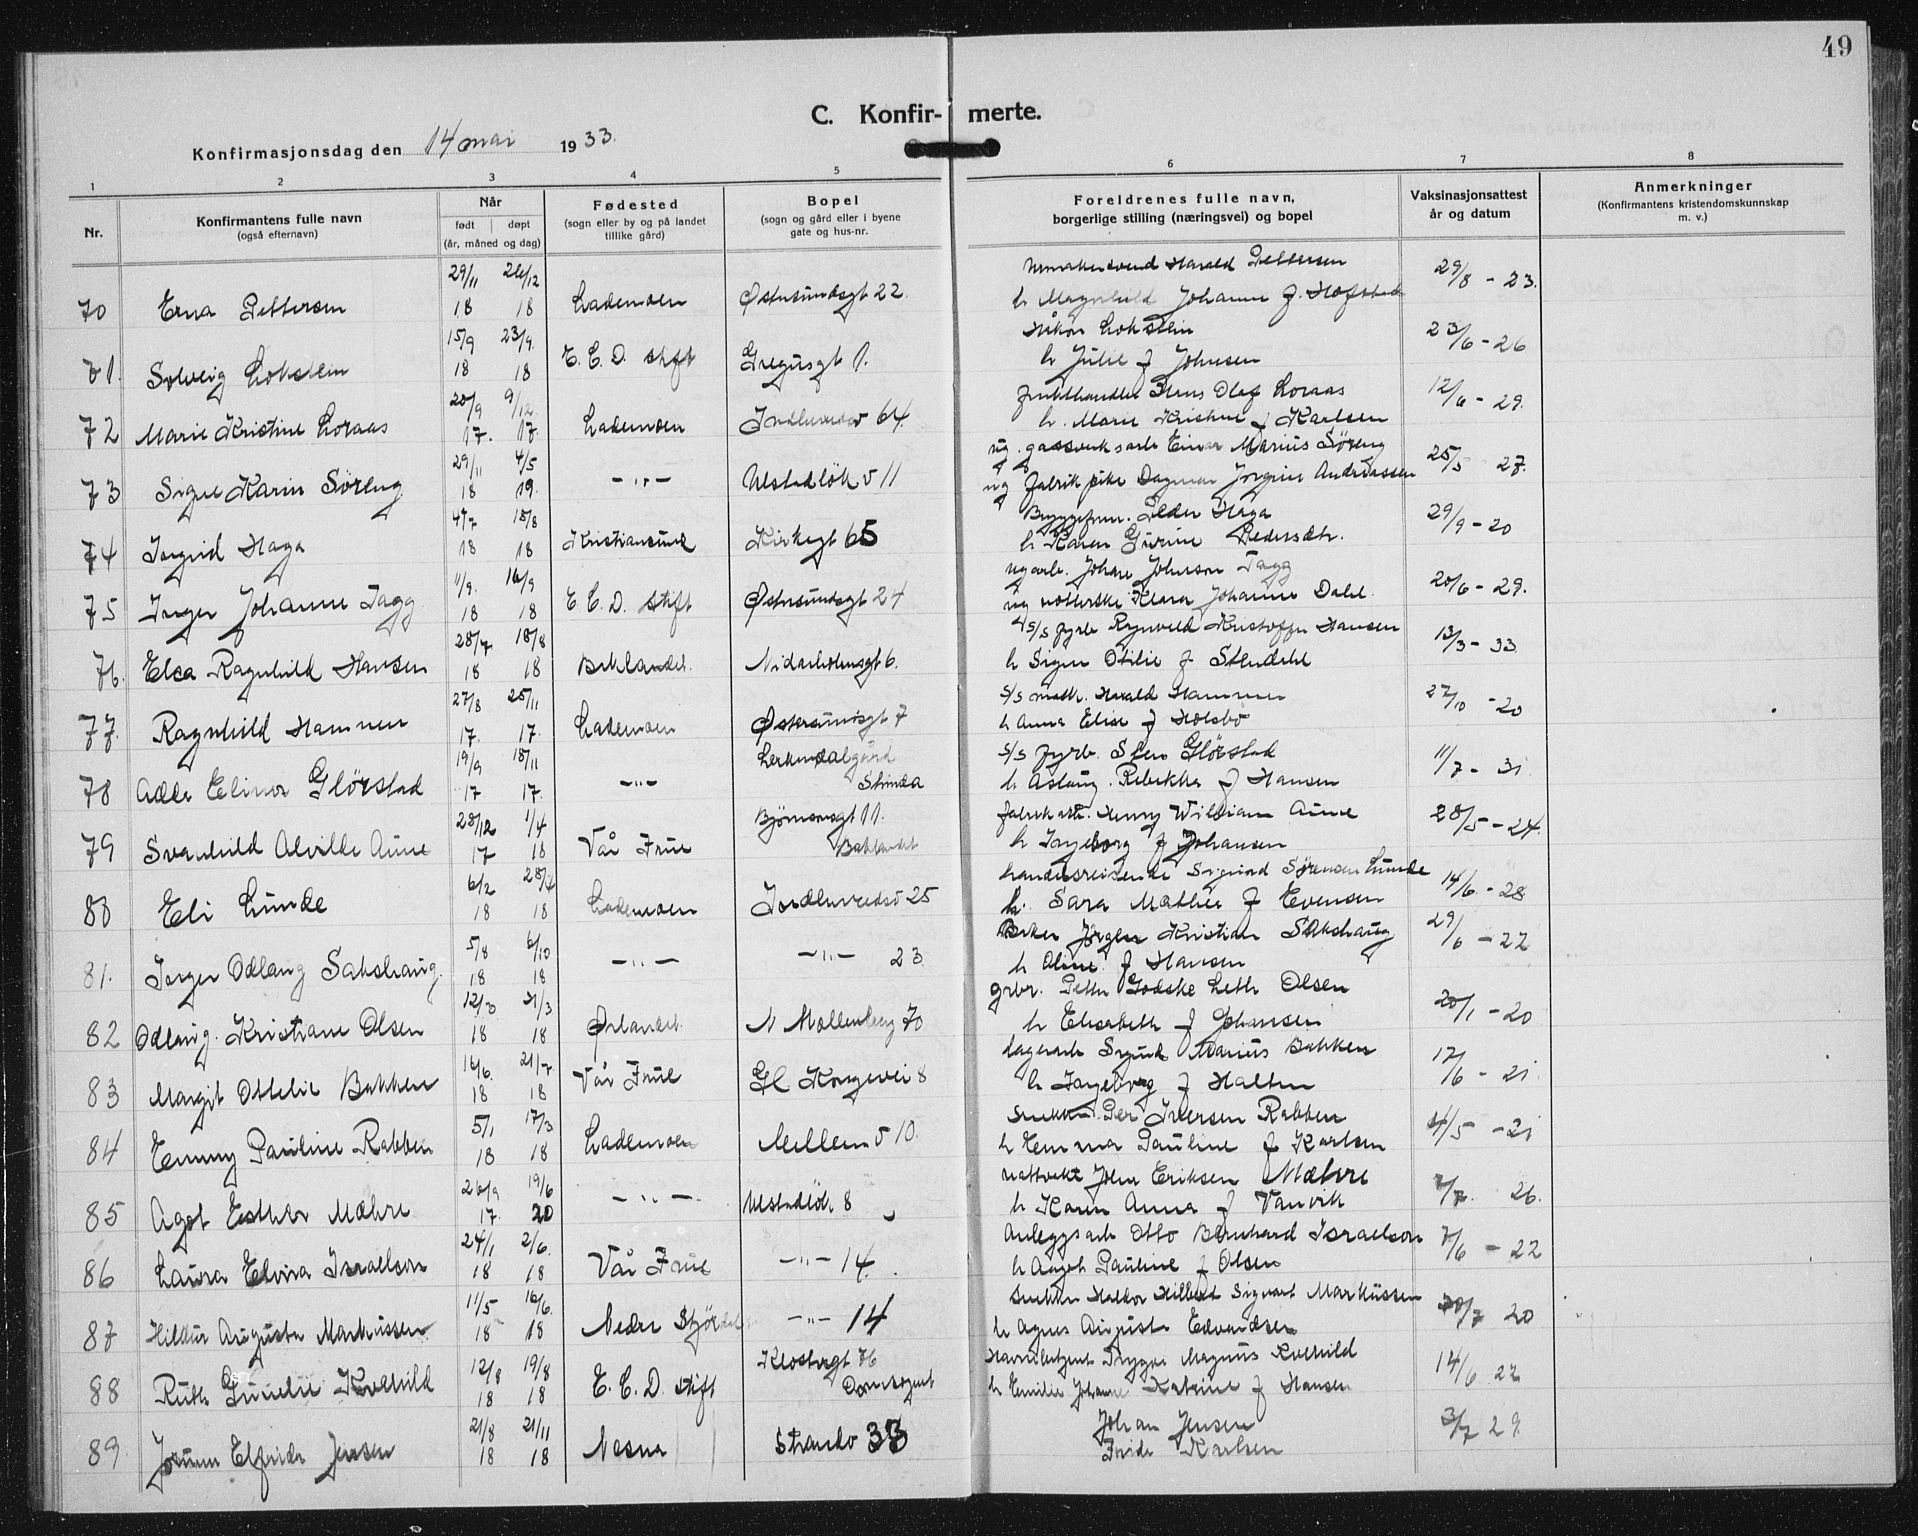 49
C. Konfir- merte.
Konfirmasjonsdag den 14 mai 1933.
1 2 3 4 5 6 7 8
Nr.
Konfirmantens fulle navn
(også efternavn)
Når
født døpt
(år, måned og dag)
Fødested
(sogn eller by og på landet
tillike gård)
Bopel
(sogn og gård eller i byene
gate og hus-nr.
Foreldrenes fulle navn,
borgerlige stilling (næringsvei) og bopel
Vaksinasjonsattest
år og datum
Anmerkninger
(Konfirmantens kristendomskunnskap
m. v.)
29/11 26/12 Harald Pettersen
70 Erna Pettersen 18 18 Lademoen Østersundsgt 22. h. Magnhild Johanne f. Hofstad 29/8 - 23.
15/9 23/9. Håkon Lokstein
71. Solveig Lokstein 18 18 E. C. D. stift Gregusgt 1. h Julie f Johnsen 23/6 - 26
20/9 9/12. frukthandler Hans Olaf Loraas
72 Marie Kristine Loraas 17. 17 Lademoen 64. h. Marie Kristine f Karlsen 12/6 - 29.
29/11 4/5 ug. gassverksarb Einar Marius Søreng
73 Signe Karin Søreng 18 19. -"- Ulstadløk v 11 ug fabrikpike Dagmar Andreassen 25/5 27.
4/7 18/8 Bryggeform. Peder Haga
74 Ingrid Haga 18 18 Kristiansund Kirkegt 65 h Karen Gurine Pedersdtr. 29/9 - 20
1/9. 16/9 ugarb. Johan Johnson Tagg
75 Inger Johanne Tagg 18 18 E. C. D. stift Østersundsgt 24 ug Klara Johanne Dahl 20/6 - 29.
28/7 18/8 s/s fyrb Ragnvald Kristoffer Hansen
76. Elsa Ragnhild Hansen 18 18 Baklandet. Nidarholmsgt 6. h Signe Otilie f Stendahl 13/3 - 33
27/8 25/11 s/s matr. Harald Hammer
77. Ragnhild Hammer 17. 17. Lademoen Østersundsgt 7 h Anna Elise f Holsbø 27/10 - 20
19/9 18/11 Lerkendalgård s/s fyrb. Sten Glørstad
78 Adda Elinor Glørstad 17 17. -"- Strinda h Aslaug Rebekka f Hansen 11/7 - 31
28/12 1/4 Bjørnsonsgt 11. fabrikarb. Henry William Aune
79 Svanhild Alvilde Aune 17 18 Vår Frue Baklandet h Ingeborg f Johansen 28/5 - 24.
6/2 28/4 handelsreisende Sigurd Sørensen Lunde
80 Eli Lunde 18 18 Lademoen 25 h. Sara Mathie f Evensen 14/6 - 28
5/8 6/10 Baker Jørgen Kristian Sakshaug
81. Inger Odlaug Sakshaug. 18 18 -"- -"- 23 h Aline f Hansen 29/6 - 22
12/3 Petter Godske Leth Olsen
82 Odlaug Kristiane Olsen 18 18 Ørlandet N Møllenberg 70 h Elisabeth f Johansen 20/1 - 20
16/6. 21/7 Sigurd Marius Bakken
83 Margit Ottelie Bakken 18 18 Vår Frue Gl Kongevei 8 h Ingeborg f Halten 17/6 - 21.
5/1 17/3 Snekker Per Iversen Rabben
84 Emmy Pauline Rabben 18 18 Lademoen Mellemv 10. h Emma Pauline f Karlsen 4/5 - 21
26/9 19/6 nattvakt John Eriksen Mæhre
85 Agot Esther Mæhre 17. 20 -"- Ulstadløk 8 h Karen Anna f Vanvik 7/7. 26.
24/1 2/6. Anleggsarb Otto Bernhard Israelson
86 Laura Elvira Israelson 18 18 Vår Frue -"- 14. h Aagot Pauline f Olsen 7/6 - 22
11/5 16/6. Snekker Haldor Hilbert Sigvart Markussen
87 Hildur Augusta Markussen 18 18 Nedre Stjørdal -"- 14 h Agnes Augusta Edvardsen 20/7 20
12/8 19/8 Klostergt 76 Havnebetjent Trygve Magnus Kvelhild
88 Ruth Kvelhild 18 18 E. C. D. stift Domsognet h Emilie Johanne Katrine f Hansen 14/6 22
21/8 21/11 Johan Jensen
89. Jorunn Elfrida Jensen 18 18 Nesna Strandv 33 Frida Karlsen 3/7 29.